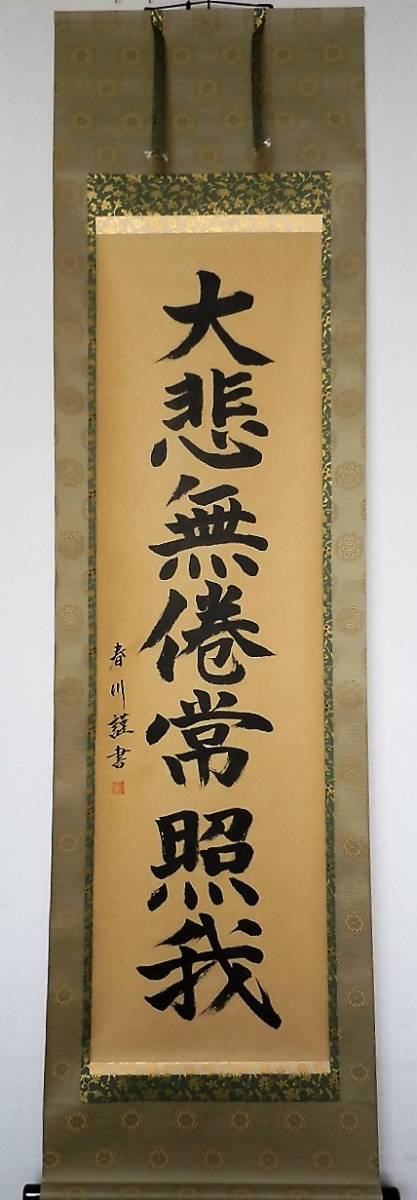 大悲無倦常照我
春川謹書